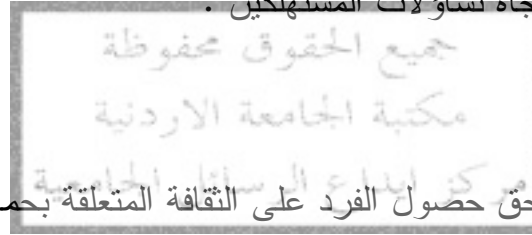 تجاه تساؤلات المستهلكين .
جميع الحقوق محفوظة
مكتبة الجامعة الاردنية
مركز ايداع الرسائل الجامعية
حق حصول الفرد على الثقافة المتعلقة